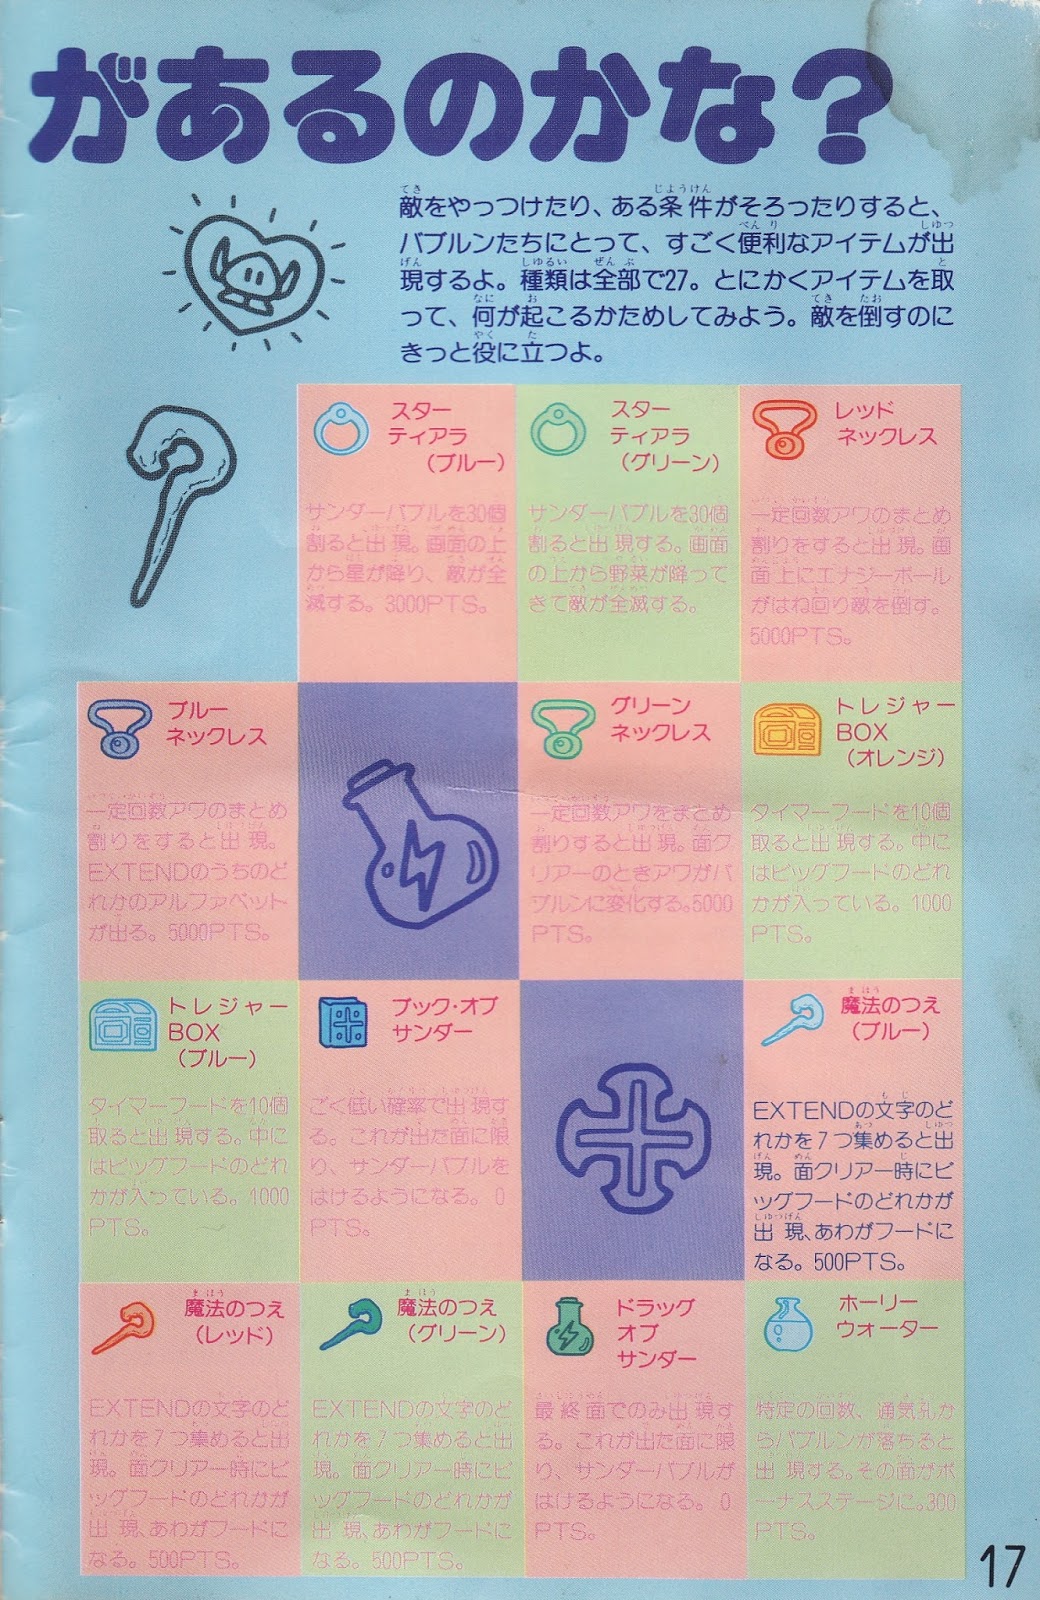 があるのかな?
敵をやっつけたり、ある条件がそろったりすると、
バブルンたちにとって、すごく便利なアイテムが出
現するよ。種類は全部で27。とにかくアイテムを取
って、何が起こるかためしてみよう。敵を倒すのに
きっと役に立つよ。
スター
ティアラ
(ブルー)
サンダーバブルを30個
割ると出現。画面の上
から星が降り、敵が全
滅する。3000PTS。
スター
ティアラ
(グリーン)
サンダーバブルを30個
割ると出現する。画面
の上から野菜が降って
きて敵が全滅する。
レッド
ネックレス
一定回数アワのまとめ
割りをすると出現。画
面上にエナジーボール
がはね回り敵を倒す。
5000PTS。
ブルー
ネックレス
一定回数アワのまとめ
割りをすると出現。
EXTENDのうちのど
れかのアルファベット
が出る。5000PTS。
グリーン
ネックレス
一定回数アワをまとめ
割りすると出現。面ク
リアーのときアワがバ
ブルンに変化する。5000
PTS。
トレジャー
BOX
(オレンジ)
タイマーフードを10個
取ると出現する。中に
はビッグフードのどれ
かが入っている。1000
PTS。
トレジャー
BOX
(ブルー)
タイマーフードを10個
取ると出現する。中に
はビッグフードのどれ
かが入っている。1000
PTS。
ブック・オブ
サンダー
ごく低い確率で出現す
る。これが出た面に限
り、サンダーバブルを
はけるようになる。0
PTS。
魔法のつえ
(ブルー)
EXTENDの文字のど
れかを7つ集めると出
現。面クリアー時にビ
ッグフードのどれかが
出現、あわがフードに
なる。500PTS。
魔法のつえ
(レッド)
EXTENDの文字のど
れかを7つ集めると出
現。面クリアー時にビ
ッグフードのどれかが
出現、あわがフードに
なる。500PTS。
魔法のつえ
(グリーン)
EXTENDの文字のど
れかを7つ集めると出
現。面クリアー時にビ
ッグフードのどれかが
出現、あわがフードに
なる。500PTS。
ドラッグ
オブ
サンダー
最終面でのみ出現す
る。これが出た面に限
り、サンダーバブルが
はけるようになる。0
PTS。
ホーリー
ウォーター
特定の回数、通気孔か
らバブルンが落ちると
出現する。その面がボ
ーナスステージに。300
PTS。
17